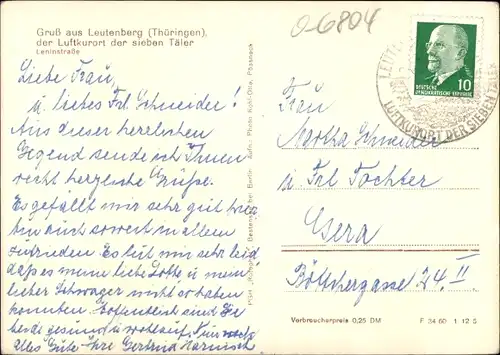 Gruß aus Leutenberg (Thüringen),
der Luftkurort der sieben Täler
Leninstraße
Liebe Frau,
u. liebes Frl Schneider!
Aus dieser herrlichen
Gegend sende ich Ihnen
recht herzliche Grüße.
Es gefällt mir sehr gut hier
bin auch soweit in allem
zufrieden. Es tut mir sehr leid
daß es meine liebe Lotte u. mein
lieber Schwager nicht so haben
konnten. Hoffentlich sind Sie
beide gesund u. wohlauf. Nun noch
alles Gute Ihre Gertrud Harnisch
Aufn. u. Photo Kohl-Otte, Pössneck
bei Berlin
0-6804
DEUTSCHE
DEMOKRATISCHE REPUBLIK
10
LUFTKURORT DER SIEBEN TÄLER
Frau
Martha Schneider
u Frl Tochter
Gera
Böttchergasse 24. II.
Verbraucherpreis 0,25 DM
F 34 60 1 12 5